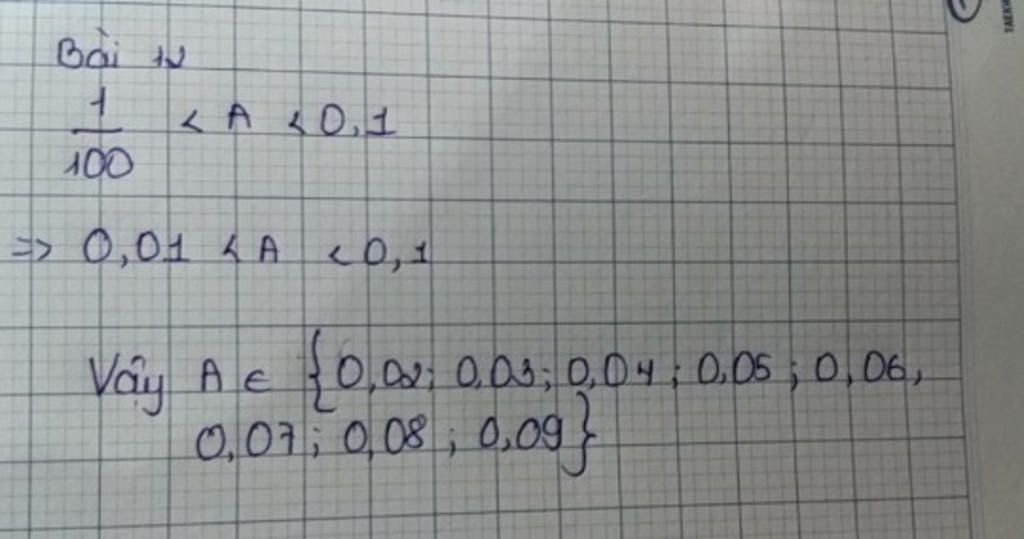 Bài 12
1
< A < 0,1
100
=> 0,01 < A < 0,1
Vậy A ∈ {0,02; 0,03; 0,04; 0,05; 0,06,
0,07; 0,08; 0,09}